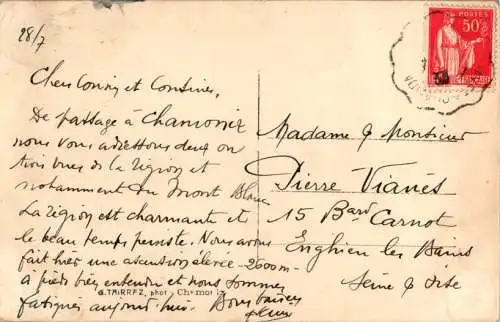 28/7
Chers Cousin et Cousine,
De passage à Chamonix
nous vous adressons deux ou
trois vues de la région et
notamment du Mont Blanc
La région est charmante et
le beau temps persiste. Nous avons
fait hier une ascension élevée - 2600m -
à pieds bien entendu et nous sommes
fatigués aujourd'hui. Bons baisers
G. TAIRRAZ, phot. Chamonix
POSTES
50c
Madame & Monsieur
Pierre Vianès
15 Bard Carnot
Enghien les Bains
Seine & Oise